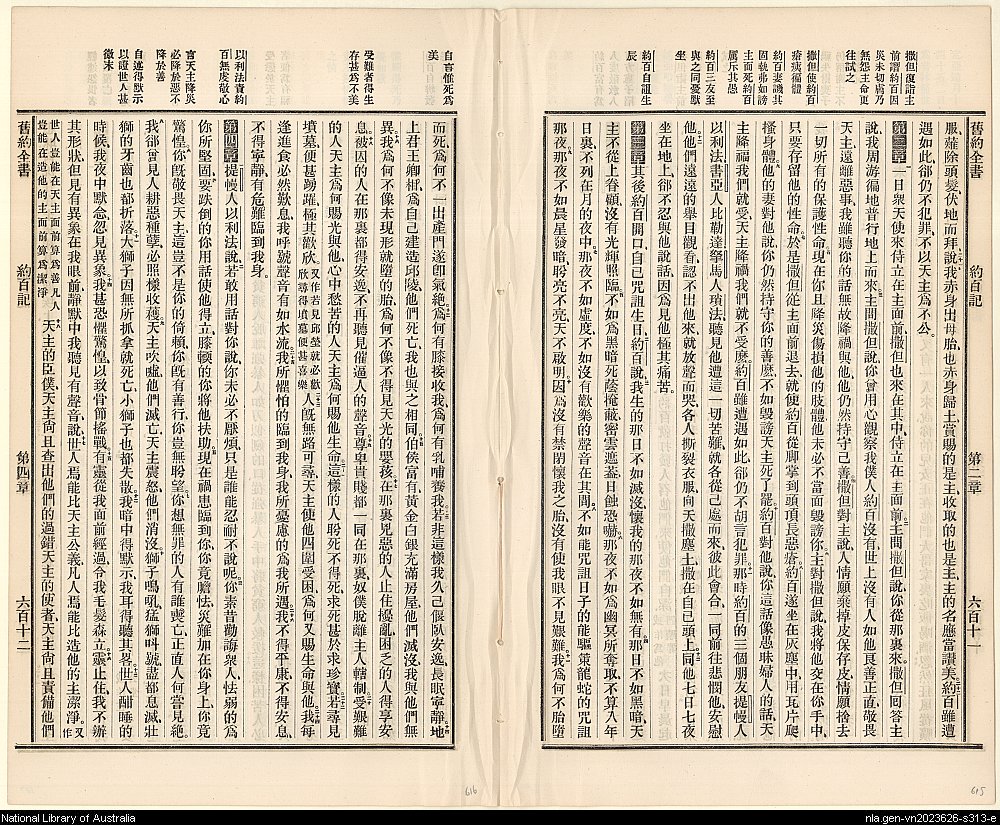 撒但復詣主
前謂約百因
災未切膚乃
無怨主命更
往試之
撒但使約百
瘡痍徧體
約百妻譏其
固執弗如謗
主而死約百
厲斥其愚
約百三友至
與之同憂默
坐
約百自詛生
辰
舊約全書 約百記 第二章 六百十一
服薙除頭髮伏地而拜說我赤身出母胎也赤身歸土賞賜的是主收取的也是主主的名應當讚美約百雖遭
遇如此卻仍不犯罪不以天主爲不公
第二章 一日衆天使來侍立在主面前撒但也來在其中侍立在主面前主問撒但說你從那裏來撒但回答主
說我周游徧地普行地上而來主問撒但說你曾用心觀察我僕人約百沒有世上沒有人如他良善正直敬畏
天主遠離惡事我雖聽你的話無故降禍與他他仍然持守己善撒但對主說人情願棄掉皮保存皮情願捨去
一切所有的保護性命現在你且降災傷損他的肢體他未必不當面毀謗你主對撒但說我將他交在你手中
只要存留他的性命於是撒但從主面前退去就使約百從脚掌到頭頂長惡瘡約百遂坐在灰塵中用瓦片爬
搔身體他的妻對他說你仍然持守你的善麽不如毀謗天主死了罷約百對他說你這話像愚昧婦人的話天
主降福我們就受天主降禍我們就不受麽約百雖遭遇如此卻仍不胡言犯罪那時約百的三個朋友提幔人
以利法書亞人比勒達拏馬人瑣法聽見他遭這一切苦難就各從己處而來彼此會合一同前往悲憫他安慰
他他們遠遠的舉目觀看認不出他來就放聲而哭各人撕裂衣服向天撒塵土撒在自己頭上同他七日七夜
坐在地上卻不忍與他說話因爲見他極其痛苦
第三章 其後約百開口自己咒詛生日約百說我生的那日不如滅沒懷我的那夜不如無有那日不如黑暗天
主不從上眷顧沒有光輝照臨不如爲黑暗死蔭掩蔽密雲遮蓋日蝕恐嚇那夜不如爲幽冥所奪取不算入年
日裏不列在月的夜中那夜不如虛度不如沒有歡樂的聲音在其間不如能咒詛日子的能驅策龍蛇的咒詛
那夜那夜不如晨星發暗盼亮不亮天不啟明因爲沒有禁閉懷我之胎沒有使我眼不見艱難我爲何不胎墮
615
自言惟死爲
美
受難者得生
存甚爲不美
以利法責約
百無虔敬心
言天主降災
必降於惡不
降於善
自述得默示
以證世人甚
微末
而死爲何不一出產門遂卽氣絶爲何有膝接收我爲何有乳哺養我若非這樣我久已偃臥安逸長眠寧靜與地
上君王卿相爲自己建造邱陵他們死亡我也與之相同伯侯富有黃金白銀充滿房屋他們滅沒我與他們無
異我爲何不像未現形就墮的胎我何不像不得見天光的嬰孩在那裏兇惡的人止住擾亂困乏的人得享安
息被囚的人在那裏都得安逸不再聽見催逼人的聲音尊卑貴賤都一同在那裏奴僕脫離主人轄制受艱難
的人天主爲何賜光與他心中愁苦的人天主爲何賜他生命這樣的人盼死不得死求死甚於求珍寶若尋見
墳墓便甚踴躍極其歡欣又作若見邱塋就必歡欣尋得墳墓便甚喜樂人旣無路可尋天主使他四圍受困爲何又賜生命與他我每
逢進食必然歎息我呼號聲音有如水流我所懼怕的臨到我身我所憂慮的爲我所遇我不得平康不得安息
不得寧靜有危難臨到我身
第四章 提幔人以利法說若敢用話對你說你未必不厭煩只是誰能忍耐不說呢你素昔勸誨衆人怯弱的爲
你所堅固要跌倒的你用話使他得立膝輭的你將他扶助現在禍患臨到你你竟膽怯災難加在你身上你竟
驚惶你旣敬畏天主這豈不是你的倚賴你旣有善行你豈無盼望你想無罪的人有誰喪亡正直人何嘗見絶
我卻曾見人耕惡種孽必照樣收穫天主吹噓他們滅亡天主震怒他們消沒獅子鳴吼猛獅呌號盡都息滅壯
獅的牙齒也都折落大獅子因無所抓拿就死亡小獅子也都失散我暗中得默示我耳得聽其畧世人酣睡的
時候我夜中默念忽見異象我甚恐懼驚惶以致骨節搖戰有靈從我面前經過令我毛髮森立靈止住我不辨
其形狀但見有異象在我眼前靜默中我聽見有聲音說世人焉能比天主公義凡人焉能比造他的主潔淨又作
世人豈能在天主面前算爲善凡人豈能在造他的主面前算爲潔淨天主的臣僕天主尙且查出他們的過錯天主的使者天主尙且責備他們
舊約全書 約百記 第四章 六百十二
616
National Library of Australia
nla.gen-vn2023626-s313-e